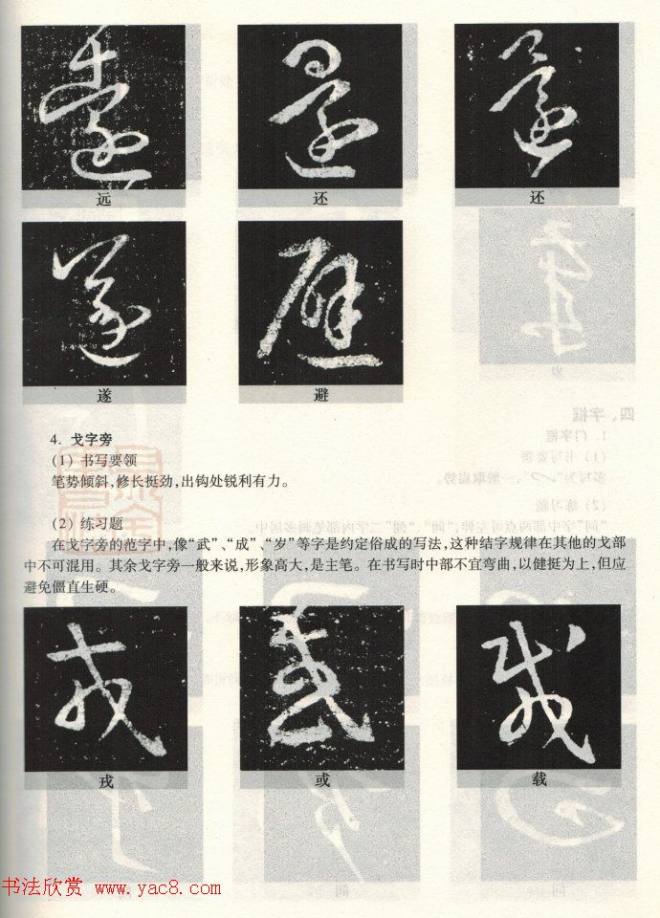 远 还 还
遂 避
4. 戈字旁
(1) 书写要领
笔势倾斜,修长挺劲,出钩处锐利有力。
(2) 练习题
在戈字旁的范字中,像“武”、“成”、“岁”等字是约定俗成的写法,这种结字规律在其他的戈部
中不可混用。其余戈字旁一般来说,形象高大,是主笔。在书写时中部不宜弯曲,以健挺为上,但应
避免僵直生硬。
戎 或 载
书法欣赏 www.yac8.com